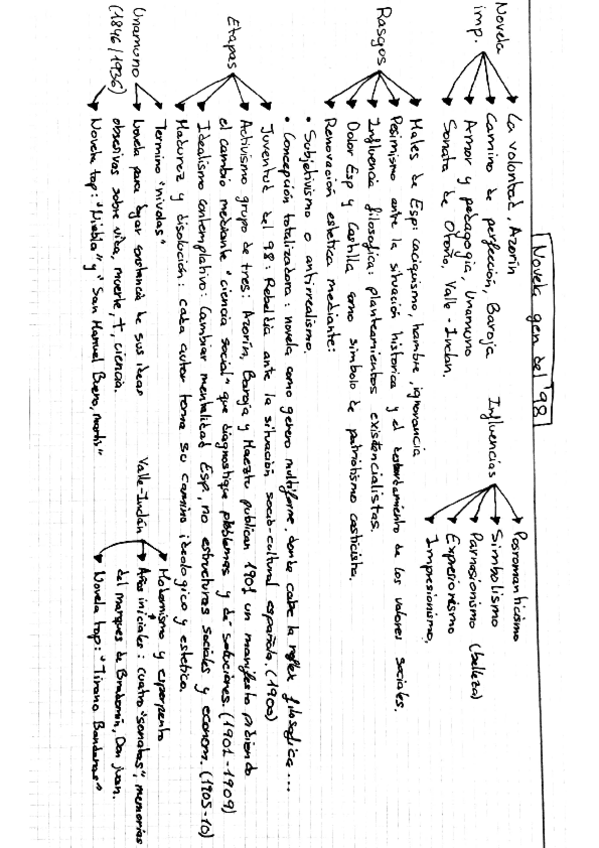 Novela gen del 98
Novela imp.
La voluntad, Azorín
Camino de perfección, Baroja
Amor y pedagogía, Unamuno
Sonata de Otoño, Valle-Inclan.
Influencias
Posromanticismo
Simbolismo
Parnasionismo (belleza)
Expresionismo
Impresionismo,
Rasgos
Males de Esp: caciquismo, hambre, ignorancia
Pesimismo ante la situación historica y el derrumbamiento de los valores sociales.
Influencia filosofica: planteamientos existencialistas.
Dolor Esp y Castilla como simbolo de patriotismo casticista.
Renovación estetica mediante:
• Subjetivismo o antirrealismo.
• Concepción totalizadora: novela como genero multiforme, donde cabe la reflex filosofica...
Etapas
Juventud del 98: Rebeldia ante la situación socio-cultural española. (1900)
Activismo grupo de tres: Azorín, Baroja y Maeztu publican 1901 un manifesto pidiendo
el cambio mediante "ciencia social" que diagnostique problemas y de soluciones. (1901-1909)
Idealismo contemplativo: Cambiar mentalidad Esp, no estructuras sociales y econom. (1905-10)
Madurez y disolución: cada autor toma su camino ideologico y estetico.
Unamuno
(1846/1936)
Termino "nivolas"
Novela para dejar constancia de sus ideas
obsesivas sobre vida, muerte, †, ciencia.
Novela top: "Niebla" y "San Manuel Bueno, martir"
Valle-Inclán
Modernismo y esperpento
Años iniciales: cuatro "sonatas", memorias
del marques de Bradomín, Don juan.
Novela top: "Tirano Banderas"